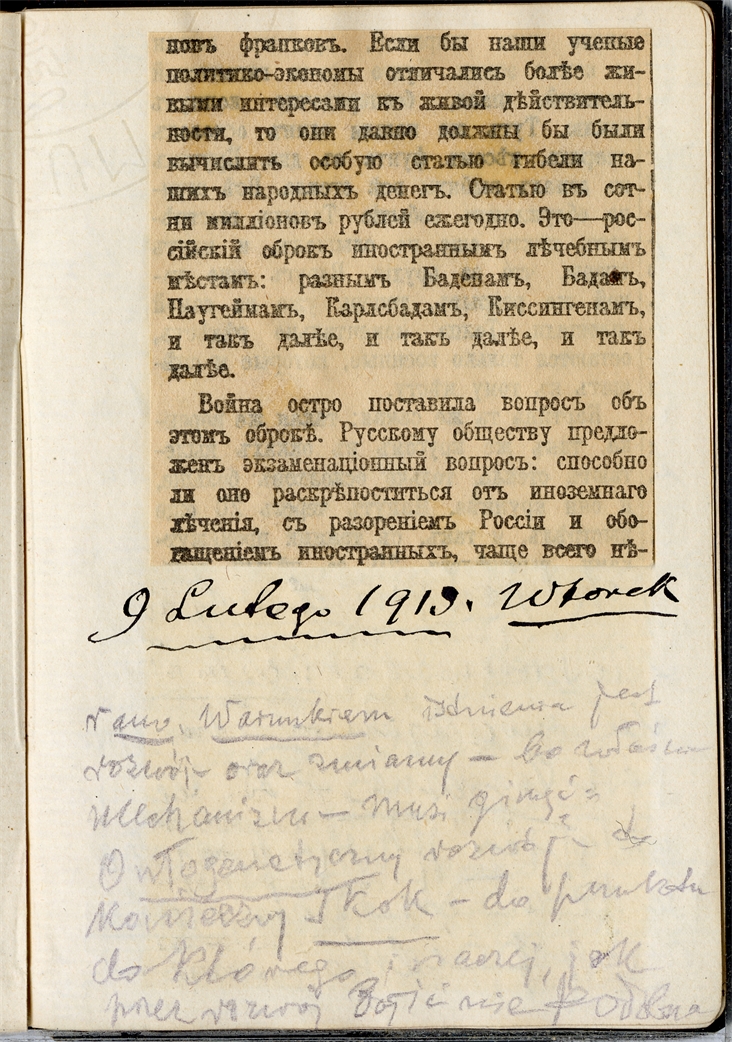 новъ франковъ. Если бы наши ученые
политико-экономы отличались болѣе жи-
выми интересами къ живой дѣйствитель-
ности, то они давно должны бы были
вычислить особую статью гибели на-
шихъ народныхъ денегъ. Статью въ сот-
ни милліоновъ рублей ежегодно. Это—рос-
сійскій оброкъ иностраннымъ лѣчебнымъ
мѣстамъ: разнымъ Баденамъ, Бадамъ,
Наугеймамъ, Карлсбадамъ, Киссингенамъ,
и такъ далѣе, и такъ далѣе, и такъ
далѣе.
Война остро поставила вопросъ объ
этомъ оброкѣ. Русскому обществу предло-
женъ экзаменаціонный вопросъ: способно
ли оно раскрѣпоститься отъ иноземнаго
лѣченія, съ разореніемъ Россіи и обо-
гащеніемъ иностранныхъ, чаще всего нѣ-
9 Lutego 1915. Wtorek
rano. Warunkiem istnienia jest
rozwój oraz zmiany — bo
Mechanizm — musi ginąć:
Ontogenetyczny rozwój do
konieczny skok — do punktu
do którego, inaczej, jak
przez rozwój dojść nie podobna